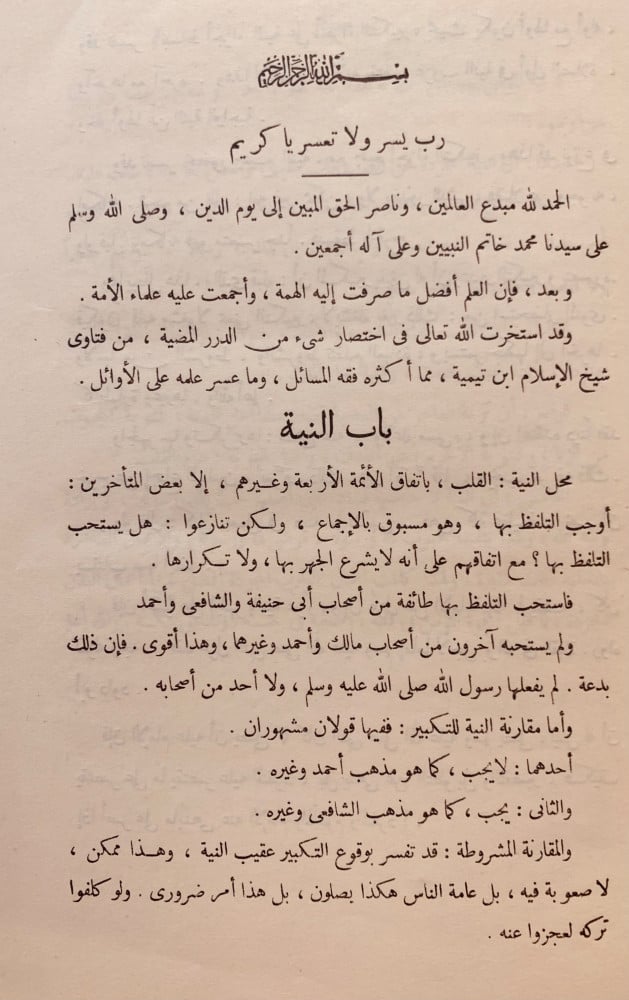 بسم الله الرحمن الرحيم
رب يسر ولا تعسر يا كريم
الحمد لله مبدع العالمين ، وناصر الحق المبين إلى يوم الدين ، وصلى الله وسلم
على سيدنا محمد خاتم النبيين وعلى آله أجمعين .
وبعد ، فإن العلم أفضل ما صرفت إليه الهمة ، وأجمعت عليه علماء الأمة .
وقد استخرت الله تعالى فى اختصار شىء من الدرر المضية ، من فتاوى
شيخ الإسلام ابن تيمية ، مما أكثره فقه المسائل ، وما عسر علمه على الأوائل .
باب النية
محل النية : القلب ، باتفاق الأئمة الأربعة وغيرهم ، إلا بعض المتأخرين :
أوجب التلفظ بها ، وهو مسبوق بالإجماع ، ولكن تنازعوا : هل يستحب
التلفظ بها ؟ مع اتفاقهم على أنه لا يشرع الجهر بها ، ولا تكرارها .
فاستحب التلفظ بها طائفة من أصحاب أبى حنيفة والشافعى وأحمد
ولم يستحبه آخرون من أصحاب مالك وأحمد وغيرهما ، وهذا أقوى . فإن ذلك
بدعة . لم يفعلها رسول الله صلى الله عليه وسلم ، ولا أحد من أصحابه .
وأما مقارنة النية للتكبير : ففيها قولان مشهوران .
أحدهما : لا يجب ، كما هو مذهب أحمد وغيره .
والثانى : يجب ، كما هو مذهب الشافعى وغيره .
والمقارنة المشروطة : قد تفسر بوقوع التكبير عقيب النية ، وهذا ممكن ،
لا صعوبة فيه ، بل عامة الناس هكذا يصلون ، بل هذا أمر ضرورى . ولو كلفوا
تركه لعجزوا عنه .